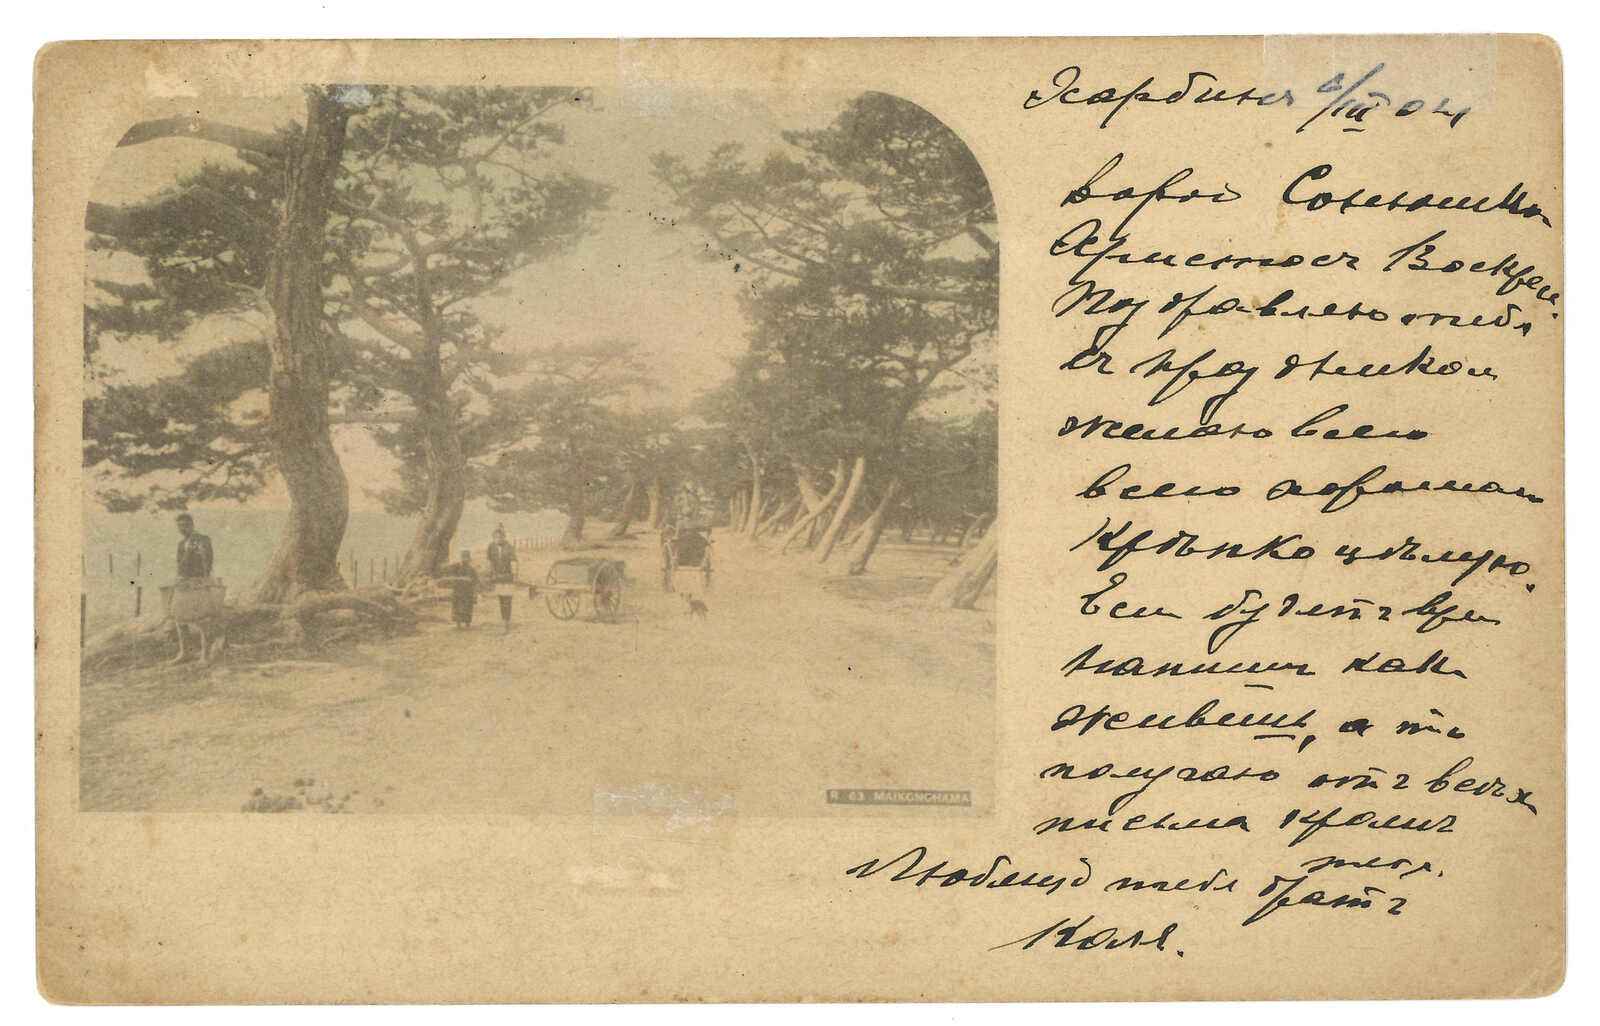 Харбинъ /III 04
Дорогой Сонюшка
Христосъ Воскресе.
Поздравляю тебя
съ праздникомъ
желаю всего
всего хорошаго
Крѣпко цѣлую.
Если будетъ время
напиши какъ
живешь, а то
получаю отъ всѣхъ
письма кромѣ
тебя.
Любящій тебя братъ
Коля.
R 63 MAIKONOHAMA